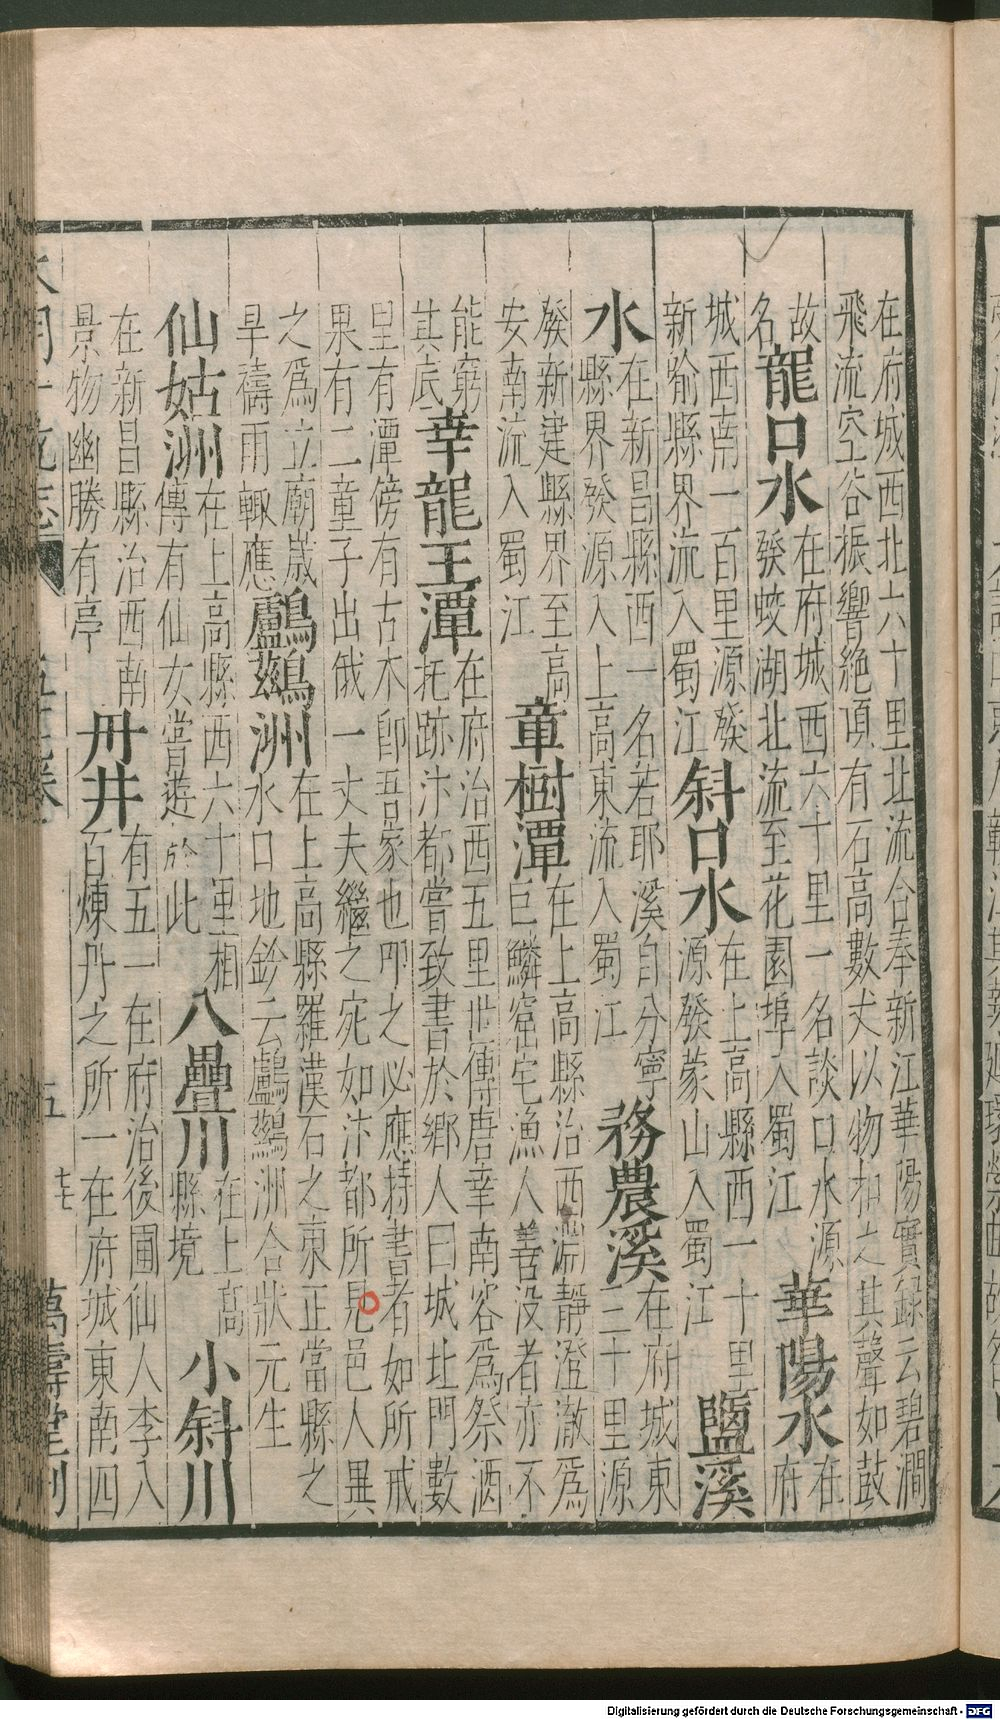 在府城西北六十里北流合奉新江華陽實録云碧澗
飛流空谷振響絶項有石高數丈以物扣之其聲如鼓
故
名
龍口水
在府城西六十里一名談口水源
發蛟湖北流至花園埠入蜀江
華陽水
在
府
城西南一百里源發
新喻縣界流入蜀江
斜口水
在上高縣西一十里
源發蒙山入蜀江
鹽溪
水
在新昌縣西一名若耶溪自分寧
縣界發源入上高東流入蜀江
務農溪
在府城東
三十里源
發新建縣界至高
安南流入蜀江
章樹潭
在上高縣治西淵靜澄澈爲
巨鱗窟宅漁人善没者亦不
能窮
其底
幸龍王潭
在府治西五里世傳唐幸南容爲祭酒
托跡汴都嘗致書於鄉人曰城址門數
里有潭傍有古木卽吾家也叩之必應持書者如所戒
果有二童子出俄一丈夫繼之宛如汴都所見邑人異
之爲立廟歲
旱禱雨輙應
鸕鷀洲
在上高縣羅漢石之東正當縣之
水口地鈐云鸕鷀洲合狀元生
仙姑洲
在上高縣西六十里相
傳有仙女嘗遊於此
八疊川
在上高
縣境
小斜川
在新昌縣治西南
景物幽勝有亭
丹井
有五一在府治後圃仙人李八
百煉丹之所一在府城東南四
萬壽堂刊
Digitalisierung gefördert durch die Deutsche Forschungsgemeinschaft - DFG